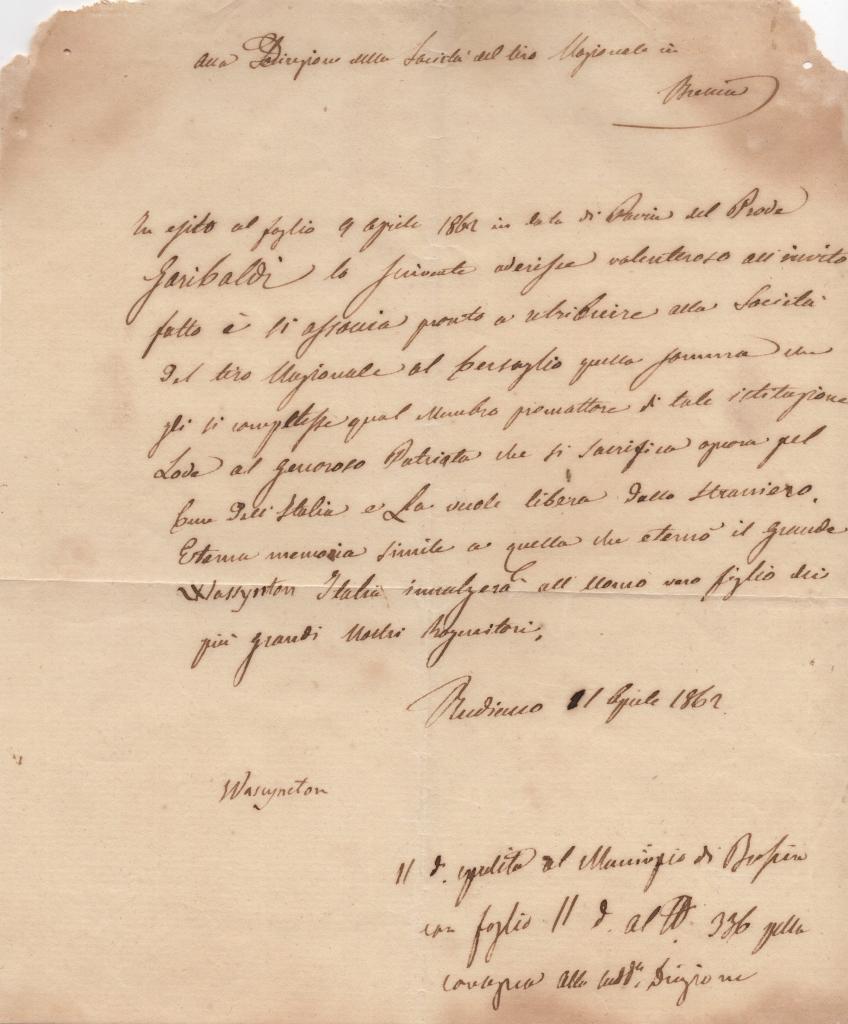 alla Direzione della Società del tiro Nazionale in
Brescia
In esito al foglio 9 Aprile 1862 in data di Pavia del Prode
Garibaldi lo scrivente aderisce valenteroso all'invito
fatto è si associa pronto a retribuire alla Società
del tiro Nazionale al bersaglio quella somma che
gli si competesse qual Membro promattore di tale istituzione
Lode al generoso Patriota che si sacrifica ognora pel
bene dell'Italia e La vuole libera dallo straniero.
Eterna memoria simile a quella che eternò il grande
Wassynton Italia innalzerà all uomo vero figlio dei
più grandi Nostri Progenitori.
Rudiano 11 Aprile 1862
Wasyncton
11 d. spedita al Municipio di Brescia
con foglio 11 d. al N. 336 pella
consegna alla sudd.a Direzione